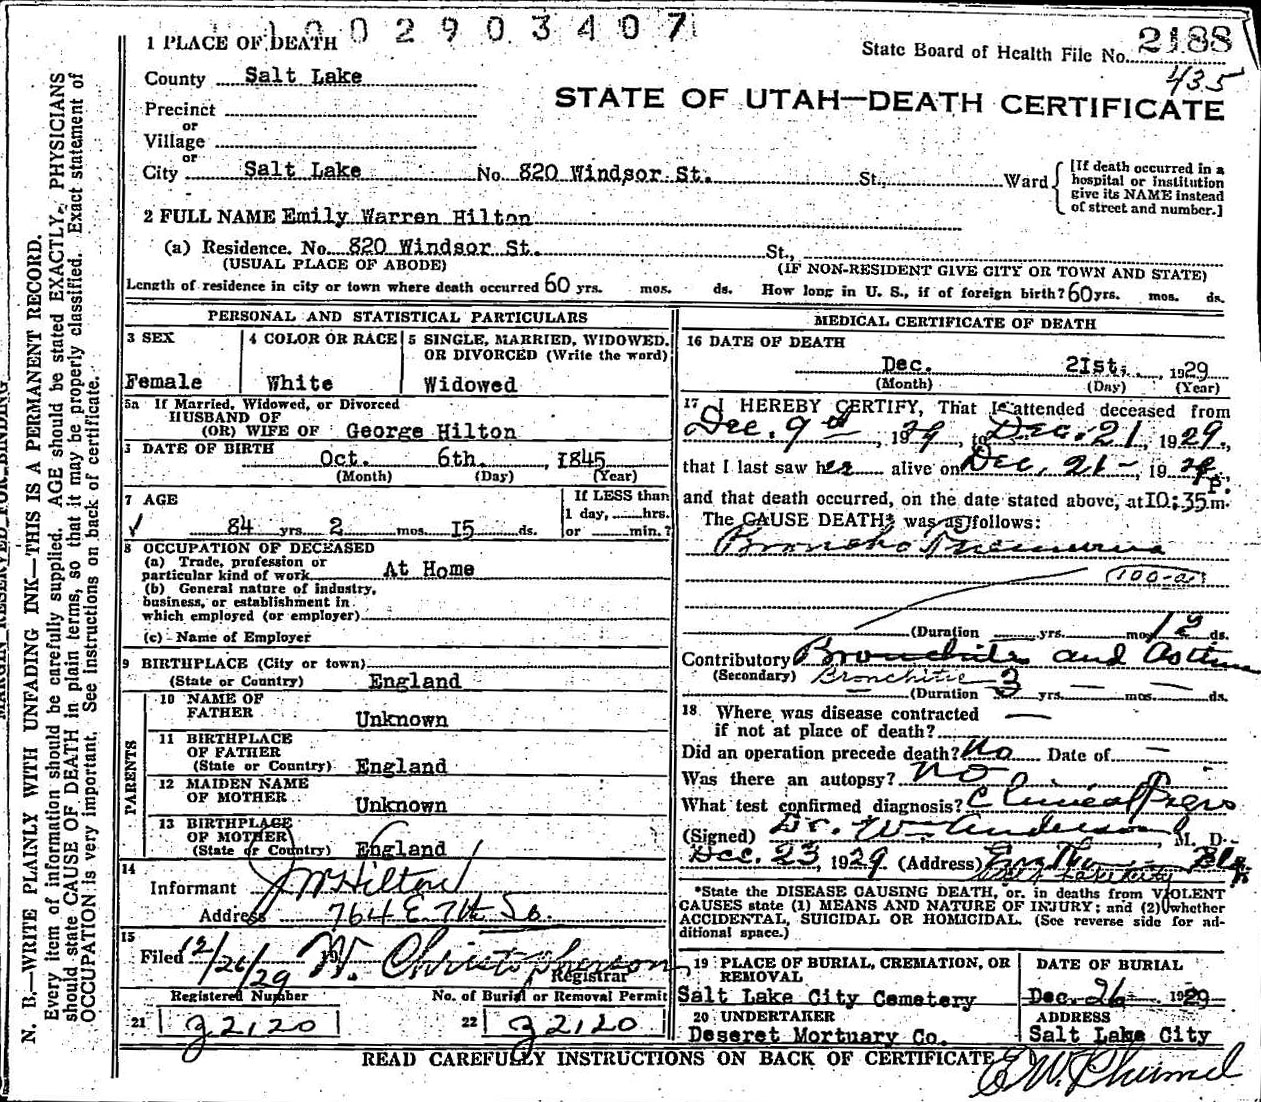 1 0 0 2 9 0 3 4 0 7
State Board of Health File No. 2188
435
1 PLACE OF DEATH
County Salt Lake
STATE OF UTAH—DEATH CERTIFICATE
Precinct
or
Village
or
City Salt Lake No. 820 Windsor St. St., Ward
[If death occurred in a hospital or institution give its NAME instead of street and number.]
2 FULL NAME Emily Warren Hilton
(a) Residence. No. 820 Windsor St. St.,
(USUAL PLACE OF ABODE) (IF NON-RESIDENT GIVE CITY OR TOWN AND STATE)
Length of residence in city or town where death occurred 60 yrs. mos. ds. How long in U. S., if of foreign birth? 60 yrs. mos. ds.
PERSONAL AND STATISTICAL PARTICULARS
3 SEX
Female
4 COLOR OR RACE
White
5 SINGLE, MARRIED, WIDOWED, OR DIVORCED (Write the word)
Widowed
5a If Married, Widowed, or Divorced
HUSBAND OF
(OR) WIFE OF George Hilton
DATE OF BIRTH
Oct. 6th. 1845
(Month) (Day) (Year)
7 AGE
84 yrs. 2 mos. 15 ds.
If LESS than
1 day, hrs.
or min.?
8 OCCUPATION OF DECEASED
(a) Trade, profession or
particular kind of work At Home
(b) General nature of industry,
business, or establishment in
which employed (or employer)
(c) Name of Employer
9 BIRTHPLACE (City or town)
(State or Country) England
PARENTS
10 NAME OF
FATHER Unknown
11 BIRTHPLACE
OF FATHER
(State or Country) England
12 MAIDEN NAME
OF MOTHER Unknown
13 BIRTHPLACE
OF MOTHER
(State or Country) England
14
Informant J W Hilton
Address 764 E. 7th So.
15
Filed 12/26/29 19 W. Christopherson
Registrar
Registered Number
21 J2120
No. of Burial or Removal Permit
22 J2120
MEDICAL CERTIFICATE OF DEATH
16 DATE OF DEATH
Dec. 21st. 1929
(Month) (Day) (Year)
17 I HEREBY CERTIFY, That I attended deceased from
Dec. 9th, 1929, to Dec. 21, 1929,
that I last saw her alive on Dec. 21 - 1929
and that death occurred, on the date stated above, at 10:35 P. m.
The CAUSE DEATH* was as follows:
Broncho Pneumonia
100-a
(Duration yrs. mos. 12 ds.
Contributory Bronchitis and Asthma
(Secondary) Bronchitis
(Duration 3 yrs. mos. ds.
18 Where was disease contracted
if not at place of death?
Did an operation precede death? No Date of
Was there an autopsy? No
What test confirmed diagnosis? Clinical
(Signed) Dr. Wm Anderson, M. D.
Dec. 23, 1929 (Address)
*State the DISEASE CAUSING DEATH, or, in deaths from VIOLENT
CAUSES state (1) MEANS AND NATURE OF INJURY; and (2) whether
ACCIDENTAL, SUICIDAL OR HOMICIDAL. (See reverse side for ad-
ditional space.)
19 PLACE OF BURIAL, CREMATION, OR
REMOVAL
Salt Lake City Cemetery
DATE OF BURIAL
Dec. 26 1929
20 UNDERTAKER
Deseret Mortuary Co.
ADDRESS
Salt Lake City
READ CAREFULLY INSTRUCTIONS ON BACK OF CERTIFICATE
MARGIN RESERVED FOR BINDING
N. B.—WRITE PLAINLY WITH UNFADING INK—THIS IS A PERMANENT RECORD.
Every item of information should be carefully supplied. AGE should be stated EXACTLY. PHYSICIANS
should state CAUSE OF DEATH in plain terms, so that it may be properly classified. Exact statement of
OCCUPATION is very important. See instructions on back of certificate.